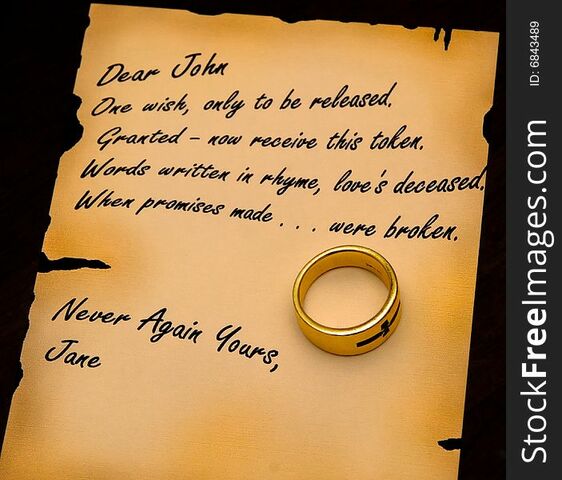 Dear John
One wish, only to be released.
Granted - now receive this token.
Words written in rhyme, love's deceased.
When promises made . . . were broken.
Never Again Yours,
Jane
ID: 6843489
StockFreeImages.com